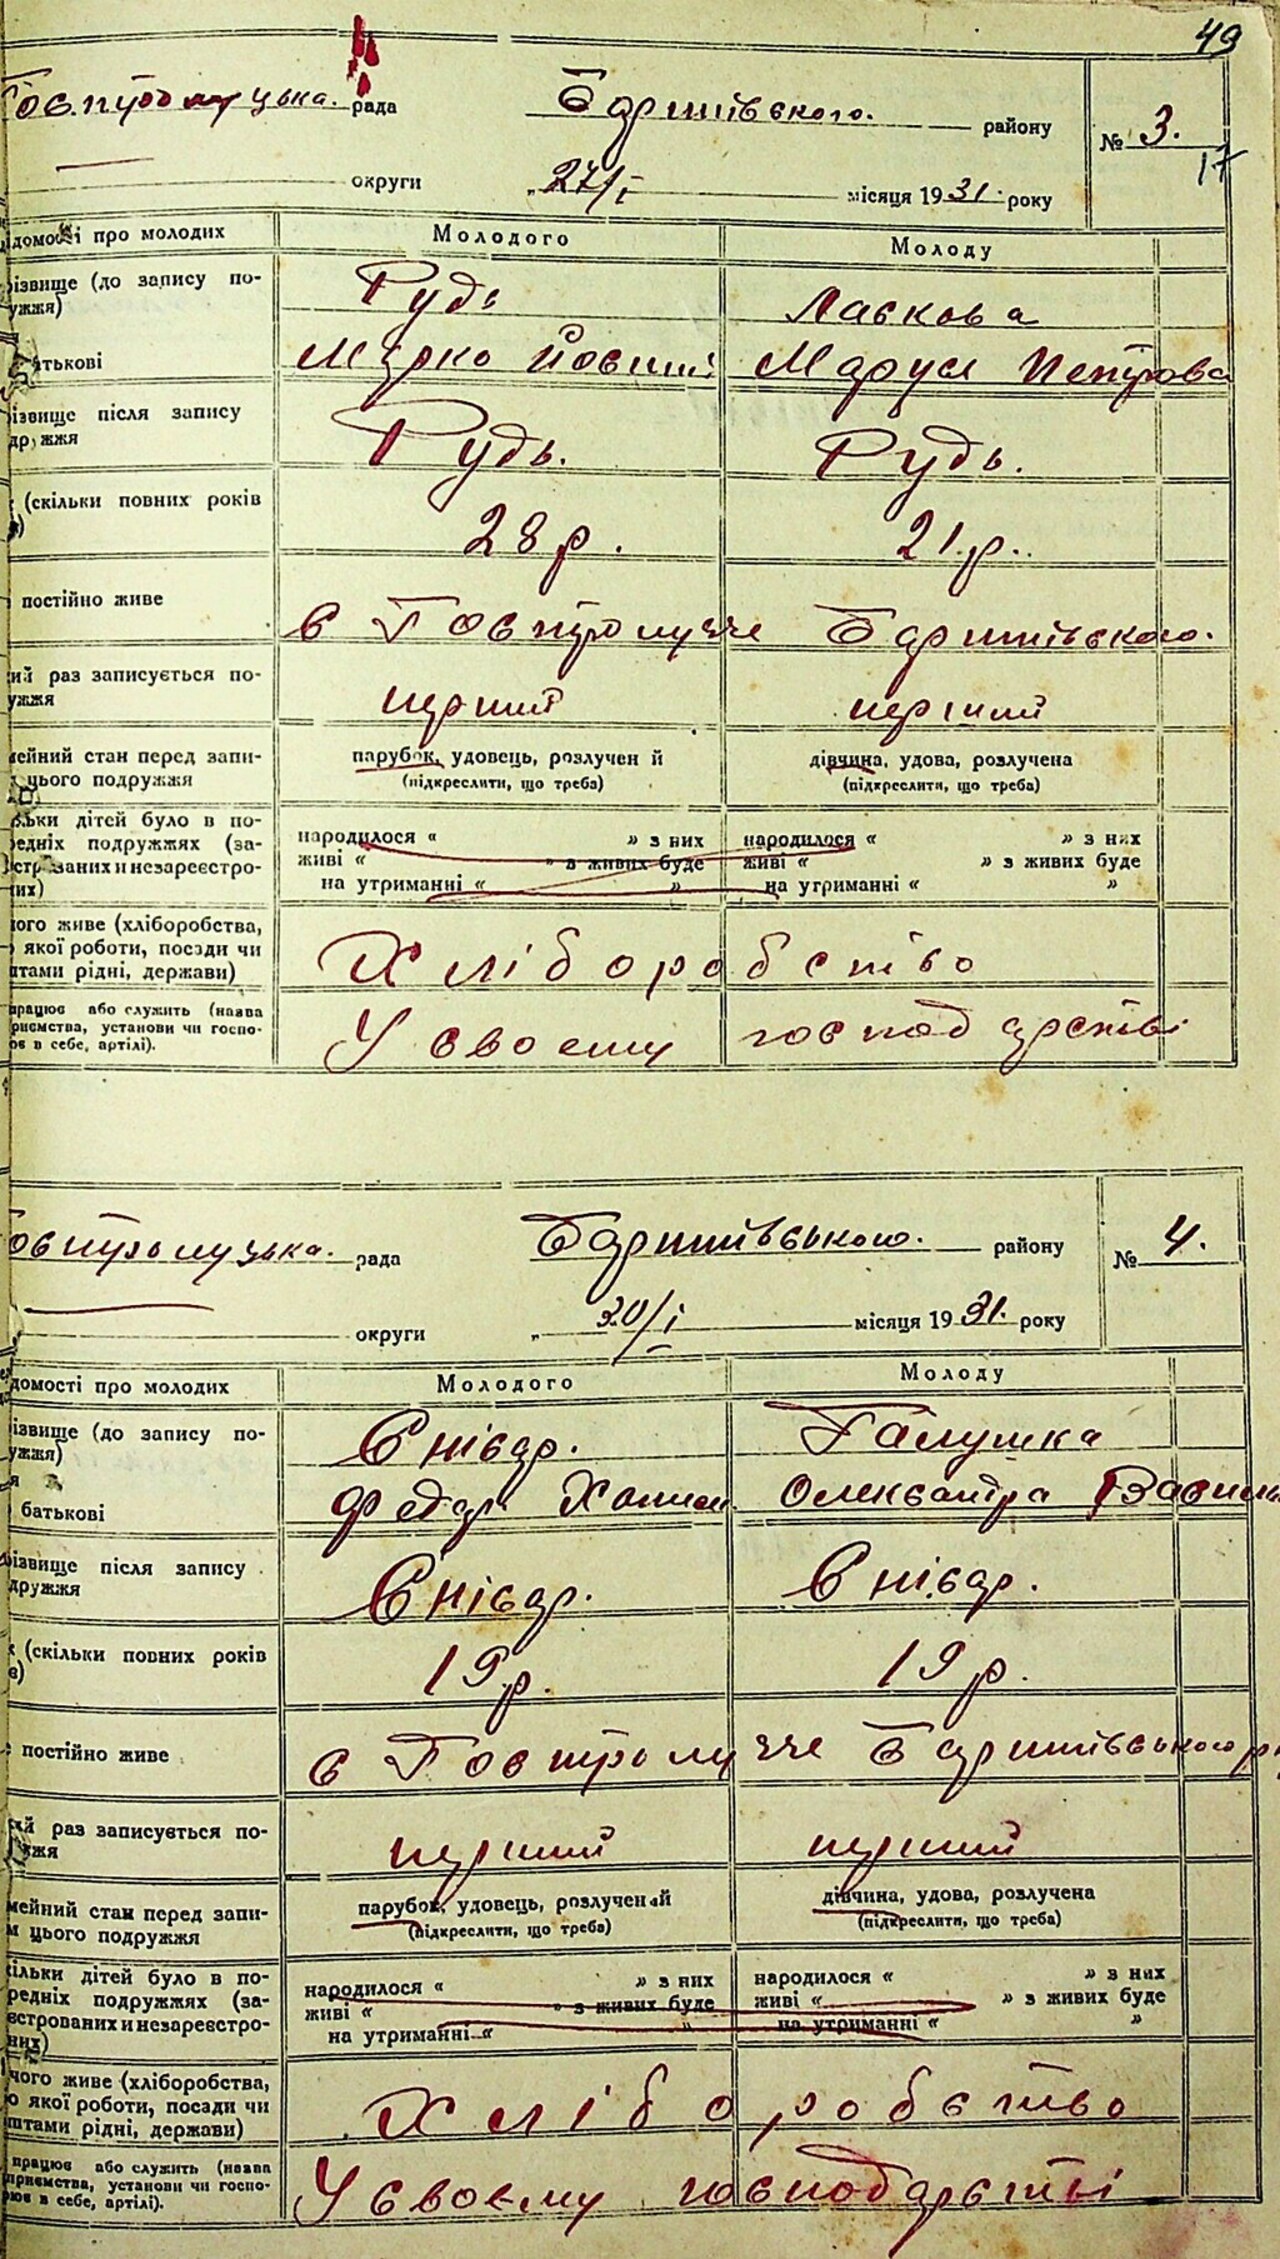 49
Гостролуцька. рада Баришівского. району № 3.
17
округи „27/I місяця 1931. року
домості про молодих Молодого Молоду
різвище (до запису по-
ужжя) Рудь Ласкова
батькові Марко Йосип Маруся Петрова
різвище після запису
дружжя Рудь. Рудь.
(скільки повних років
28 р. 21.р..
постійно живе в Гостролуччe Баришівского.
ий раз записується по-
ужжя перший перший
мейний стан перед запи-
цього подружжя
парубок, удовець, розлучений дівчина, удова, розлучена
(підкреслити, що треба) (підкреслити, що треба)
льки дітей було в по-
редніх подружжях (за-
естрованих и незареєстро-
них)
народилося “ ” з них народилося “ ” з них
живі “ ” з живих буде живі “ ” з живих буде
на утриманні “ ” на утриманні “ ”
чого живе (хліборобства,
якої роботи, посади чи
штами рідні, держави) Хліборобство
працює або служить (назва
приємства, установи чи госпо-
ює в себе, артілі). У своєму господарстві
остролуцька. рада Баришівського. району № 4.
округи „30/I місяця 1931. року
домості про молодих Молодого Молоду
різвище (до запису по-
ужжя) Снісар. Галушка
я
батькові Федір Олександра
різвище після запису
дружжя Снісар. Снісар.
к (скільки повних років
в) 19р. 19 р.
постійно живе в Гостролучче Баришівського р
кий раз записується по-
ужжя перший перший
мейний стан перед запи-
м цього подружжя
парубок, удовець, розлучений дівчина, удова, розлучена
(підкреслити, що треба) (підкреслити, що треба)
ільки дітей було в по-
редніх подружжях (за-
естрованих и незареєстро-
них)
народилося “ ” з них народилося “ ” з них
живі “ ” з живих буде живі “ ” з живих буде
на утриманні “ ” на утриманні “ ”
чого живе (хліборобства,
о якої роботи, посади чи
штами рідні, держави) Хліборобство
працює або служить (назва
приємства, установи чи госпо-
рює в себе, артілі). У своєму господарстві